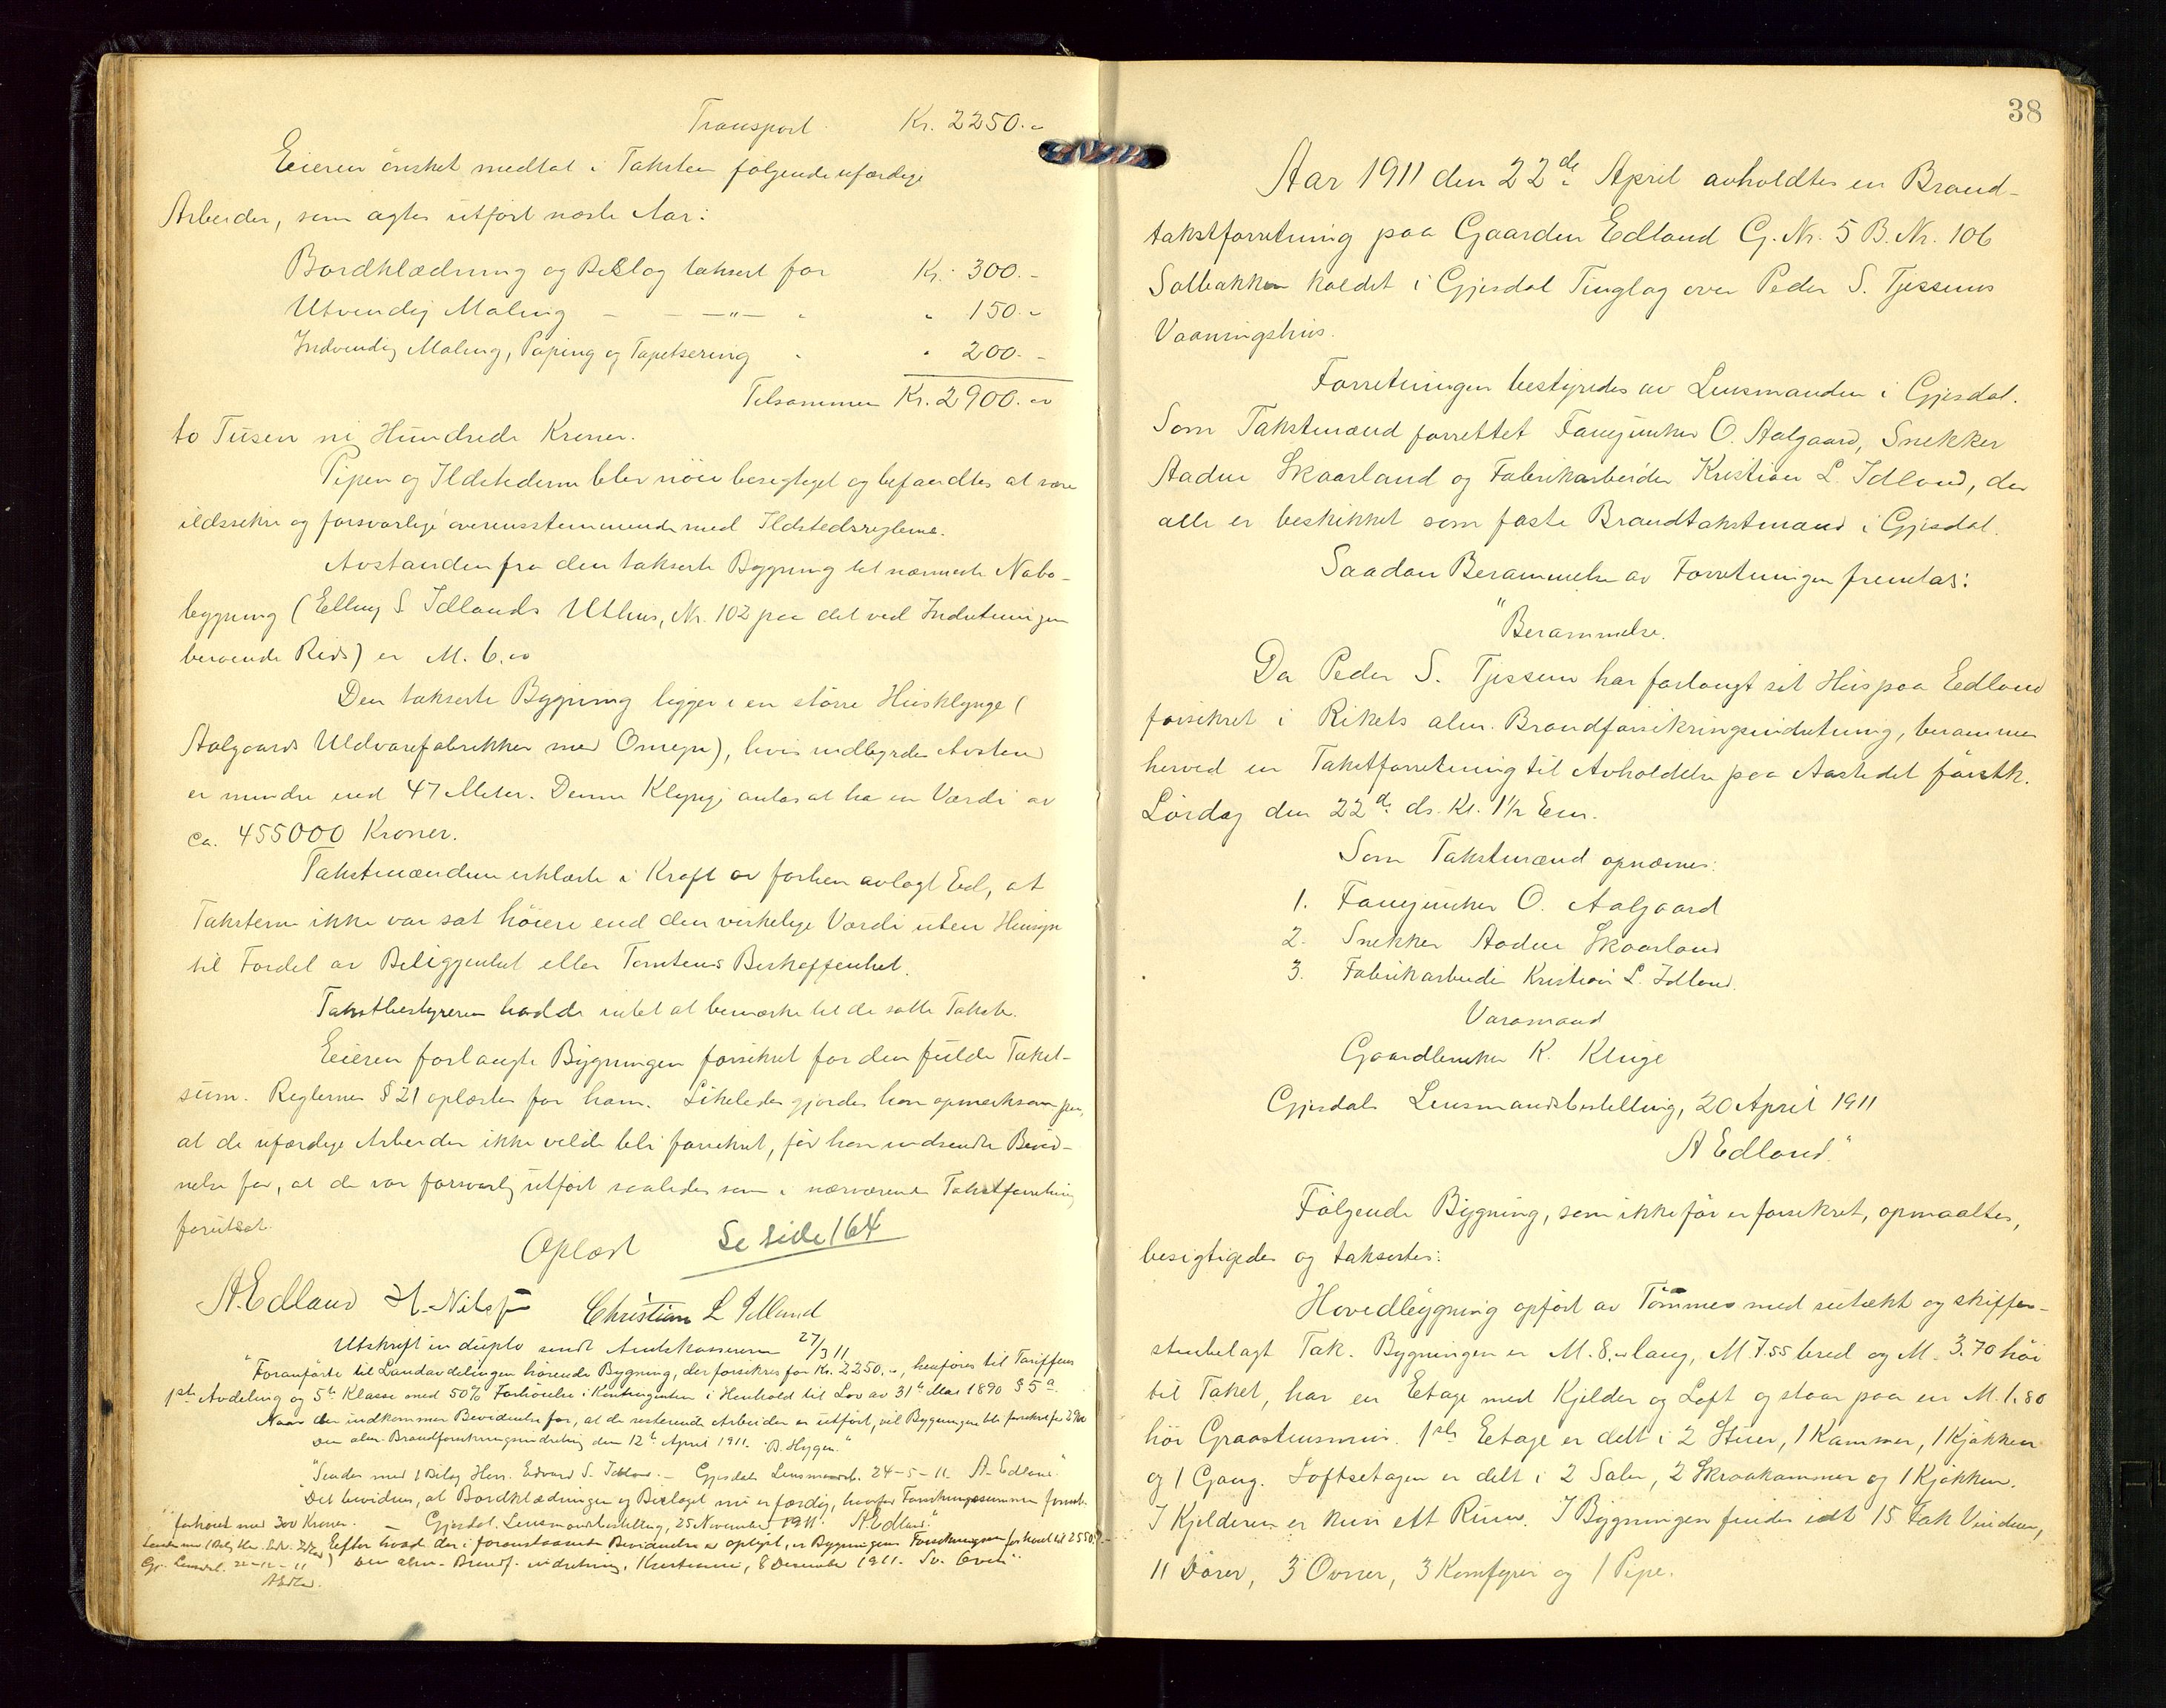 Transport Kr. 2250.-
Eieren ønsket medtat i Taksten følgende ufærdige
Arbeider, som agtes utført næste Aar:
Bordklædning og Beslag taksert for Kr. 300.-
Utvendig Maling - - -"- " " 150.-
Indvendig Maling, Paping og Tapetsering " " 200.-
Tilsammen Kr. 2900.oo
to Tusen ni Hundrede Kroner.
Pipen og Ildstederne blev nøie besigtiget og befandtes at være
ildssikre og forsvarlige overensstemmende med Ildstedsreglerne.
Avstanden fra den takserte Bygning til nærmeste Nabo-
bygning (Elling S Idlands Uthus, Nr. 102 paa det ved Indretningen
beroende Rids) er M. 6.oo
Den takserte Bygning ligger i en større Husklynge (
Aalgaards Uldvarefabrikker med Omegn), hvis indbyrdes Avstand
er mindre end 47 Meter. Denne Klynge antas at ha en Værdi av
ca. 455000 Kroner.
Takstmændene erklærte i Kraft av forhen avlagt Ed, at
Taksterne ikke var sat høiere end den virkelige Værdi uten Hensyn
til Fordel av Beliggenhet eller Tomtens Beskaffenhet.
Takstbestyreren hadde intet at bemerke til de satte Takster.
Eieren forlangte Bygningen forsikret for den fulde Takst-
sum. Reglernes § 21 oplæstes for ham. Likeledes gjordes han opmerksom paa,
at de ufærdige Arbeider ikke vilde bli forsikret, før han indsendte Bevid-
nelse for, at de var forsvarlig utført saaledes som i nærværende Takstforretning
forutsat.
Oplæst Se side 164
A. Edland H. Nilsen Christian L Idland
Utskrift in duplo sendt Amtskassereren 27/3 11.
"Foranførte til Landavdelingen hørende Bygning, der forsikres for Kr. 2250.-, henføres til Tariffens
1ste Avdeling og 5te Klasse med 50% Forhøielse i Kontingenten i Henhold til Lov av 31te Mai 1890 § 5 a.
Naar der indkommer Bevidnelse for, at de resterende Arbeider er utført, vil Bygningen bli forsikret for 2900
Den alm. Brandforsikringsindretning den 12te April 1911. B. Hygen."
"Sendes med 1 Bilag Herr. Edvard S. Idland. - Gjesdals Lensmandsb. 24-5-11. A. Edland"
"Det bevidnes, at Bordklædningen og Beslaget nu er færdig, hvorfor Forsikringssummen
forhøiet med 300 Kroner. - Gjesdal Lensmandsbestilling, 25 November 1911. A Edland."
Efter hvad der i foranstaaende Bevidnelse er oplyst, er Bygningens Forsikringssum forhøiet til 2550.-
Den alm. Brandf. indretning, Kristiania, 8 December 1911.
38
Aar 1911 den 22de April avholdtes en Brand-
takstforretning paa Gaarden Edland G. Nr. 5 B. Nr. 106
Solbakken kaldet i Gjesdal Tinglag over Peder S. Tjessems
Vaaningshus.
Forretningen bestyredes av Lensmanden i Gjesdal.
Som Takstmænd forrettet Fanejunker O. Aalgaard, Snekker
Aadne Skaarland og Fabrikarbeider Kristian L. Idland, der
alle er beskikket som faste Brandtakstmænd i Gjesdal.
Saadan Berammelse av Forretningen fremlas:
"Berammelse.
Da Peder S. Tjessem har forlangt sit Hus paa Edland
forsikret i Rikets alm. Brandforsikringsindretning, berammes
herved en Takstforretning til Avholdelse paa Aastedet førstk.
Lørdag den 22de ds. Kl. 1½ Em.
Som Takstmænd opnævnes:
1. Fanejunker O. Aalgaard
2. Snekker Aadne Skaarland
3. Fabrikarbeider Kristian L. Idland.
Varamand
Gaardbruker K. Kluge
Gjesdals Lensmandsbestilling, 20 April 1911
A Edland."
Følgende Bygning, som ikke før er forsikret, opmaaltes,
besigtigedes og taksertes:
Hovedbygning opført av Tømmer med sutækt og skiffer-
stenbelagt Tak. Bygningen er M. 8.oo lang, M 7.55 bred og M. 3.70 høi
til Taket, har en Etage med Kjelder og Loft og staar paa en M. 1.80
høi Graastensmur. 1ste Etage er delt i 2 Stuer, 1 Kammer, 1 Kjøkken
og 1 Gang. Loftsetagen er delt i 2 Saler, 2 Skraakammer og 1 Kjøkken.
I Kjelderen er kun ett Rum. I Bygningen findes idt 15 Fak Vinduer,
11 Dører, 3 Ovner, 3 Komfyrer og 1 Pipe.